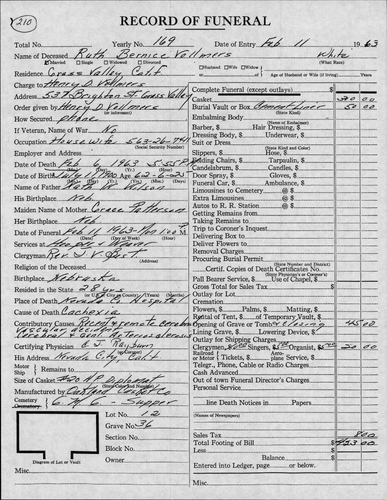 210
RECORD OF FUNERAL
Total No. Yearly No. 169 Date of Entry Feb 11 1963
Name of Deceased Ruth Bernice Vollmers White
Married Single Widowed Divorced Husband Widow (What Race)
Residence Grass Valley, Calif of Age of Husband or Wife (if living) Years
Charge to Henry D. Vollmers
Address 537 Brighton St Grass Valley
Order given by Henry D Vollmers
How Secured phone
If Veteran, Name of War No
Occupation House wife 563-26-
(Social Security Number)
Employer and Address
Date of Death Feb 6, 1963 5:55 P.M.
Date of Birth July 1900 Age 62-6-25
Name of Father
His Birthplace Neb.
Maiden Name of Mother Grace Patterson
Her Birthplace Neb.
Date of Funeral Feb 11 1963
Services at Hooper & Weaver
Clergyman Rev. J V
Religion of the Deceased
Birthplace Nebraska
Resided in the State 28 yrs
Place of Death Nevada Co Hospital
Cause of Death Cachexia
Contributory Cause Recent & remote cerebral
vascular accident
Certifying Physician C J Rayburn
His Address Nevada City, Calif
Motor Ship Remains to
Size of Casket Diplomat
Manufactured by Oakland Casket Co
Cemetery
Crematory
Lot No. 12
Grave No. 36
Section No.
Block No.
Owner
Diagram of Lot or Vault
Misc.
Complete Funeral (except outlays) $
Casket
Burial Vault or Box Cement Liner 50 00
(State Kind)
Embalming Body
(Name of Embalmer)
Barber, $ Hair Dressing, $
Dressing Body, $ Underwear, $
Suit or Dress
(State Kind and Color)
Slippers, $ Hose, $
Folding Chairs, $ Tarpaulin, $
Candelabrum, $ Candles, $
Door Spray, $ Gloves, $
Funeral Car, $ Ambulance, $
Limousines to Cemetery @ $
Extra Limousines @ $
Autos to R. R. Station @ $
Getting Remains from
Taking Remains to
Trip to Coroner's Inquest
Delivering Box to
Deliver Flowers to
Removal Charges
Procuring Burial Permit
(State Number and District)
Certif. Copies of Death Certificates No.
(State Person's or Coroner's)
Pall Bearer Service, $ Use of Chapel, $
Gross Total for Sales Tax $
Outlay for Lot
Cremation
Flowers, $ Palms, $ Matting, $
Rental of Tent, $ of Temporary Vault, $
Opening of Grave or Tomb 45 00
Lining Grave, $ Lowering Device, $
Outlay for Shipping Charges
Clergyman, Singers, $ Organist, $ 20 00
Railroad or Motor Tickets, $ Aeroplane Service, $
Telegr., Phone, Cable or Radio Charges
Cash Advanced
Out of town Funeral Director's Charges
Personal Service
line Death Notices in Papers
(Names of Newspapers)
Sales Tax 8 00
Total Footing of Bill $
Less $
Balance $
Entered into Ledger, page or below.
Misc.